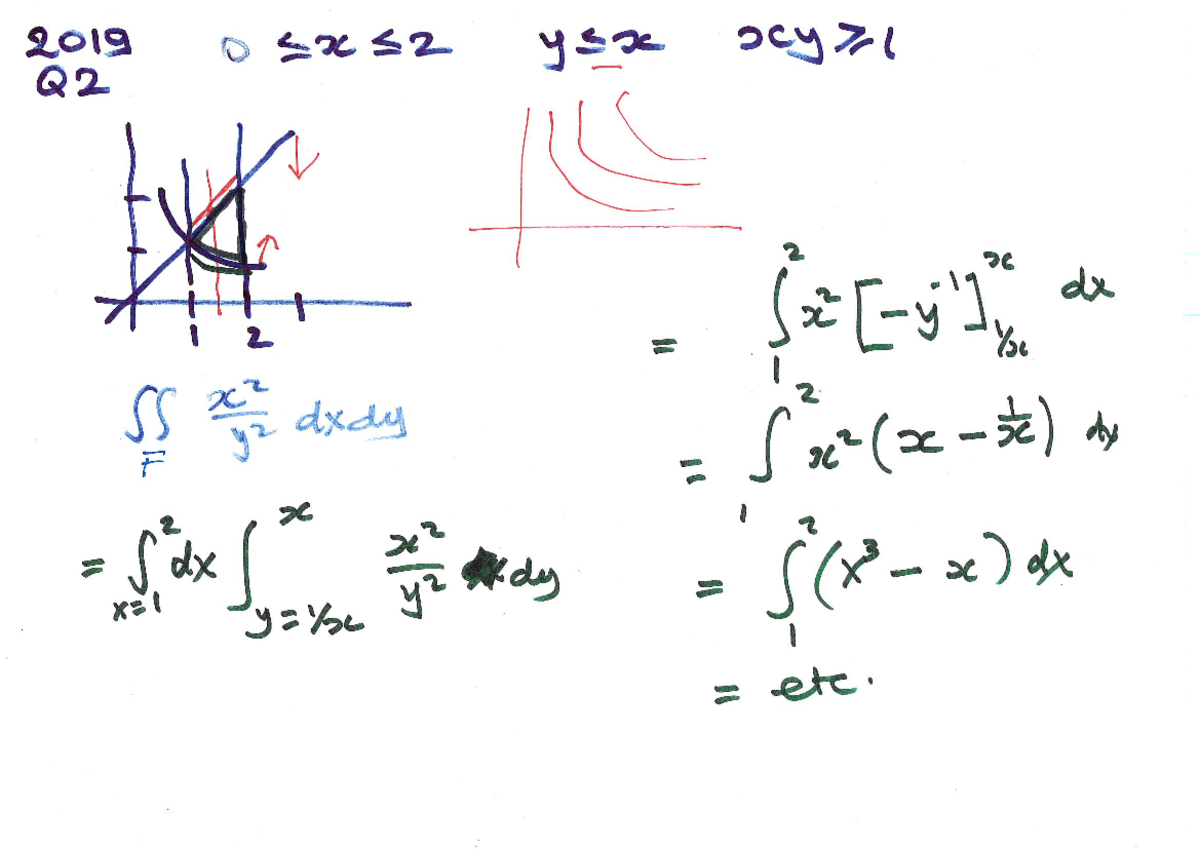 2019 0 ≤ x ≤ 2 y ≤ x xy ≥ 1
Q2
1 2
∬_F x²/y² dxdy
= ∫_{x=1}^{2} dx ∫_{y=1/x}^{x} x²/y² dy
= ∫_1^2 x² [-y^{-1}]_{1/x}^{x} dx
= ∫_1^2 x² (x - 1/x) dx
= ∫_1^2 (x³ - x) dx
= etc.